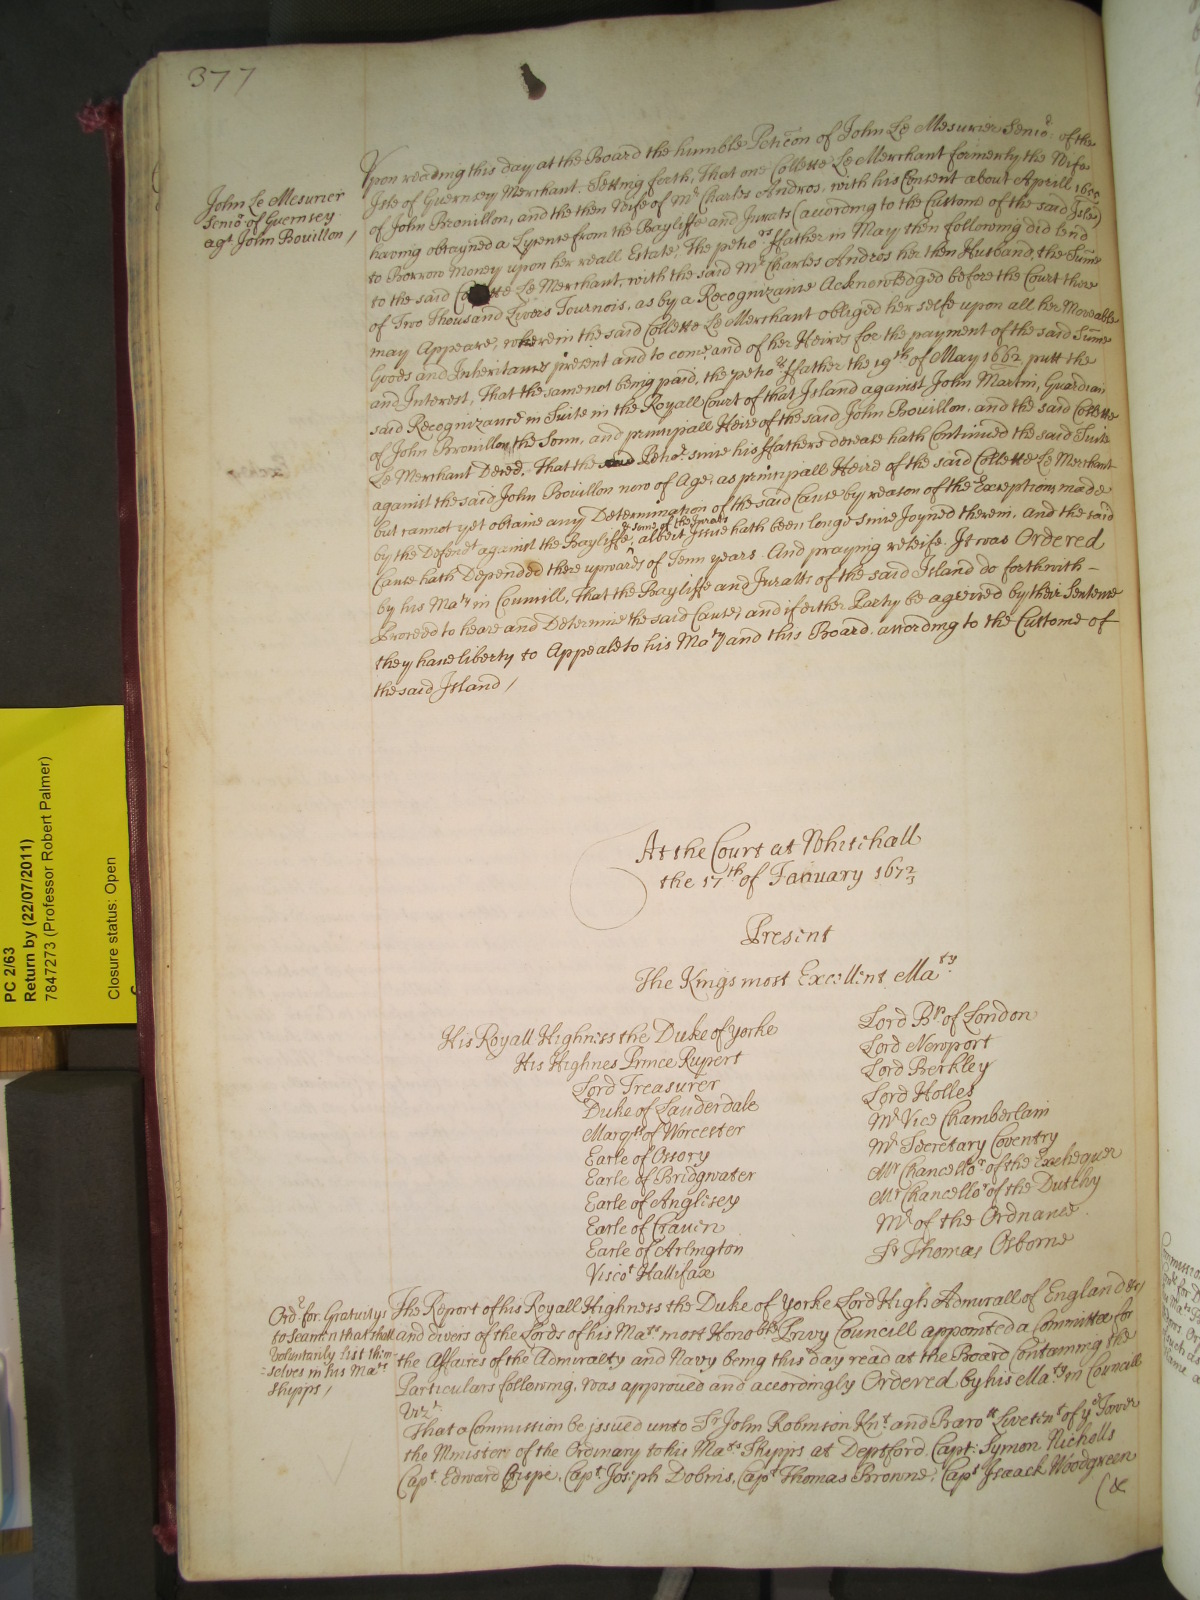 377
John Le Mesurier
Senior of Guernsey
agt John Bouillon /
Upon reading this day at the Board the humble Peticon of John Le Mesurier Senior of the
Isle of Guernsey Merchant. Setting forth, That one Collette Le Merchant formerly the Wife
of John Brouillon, and the then Wife of Mr Charles Andros, with his Consent about Aprill
having obtayned a Lycence from the Bayliffe and Jurats (according to the Custome of the said Isle)
to Borrow Money upon her reall Estate, The petiors ffather in May then following did lend
to the said Le Merchant, with the said Mr Charles Andros her then Husband, the Sume
of Two Thousand Livers Tournois, as by a Recognizance Acknowledged before the Court there
may Appeare, wherein the said Collette Le Merchant obliged her selfe upon all her Moveable
Goods and Inheritances present and to come, and of her Heires for the payment of the said Sume
and Interest, That the same not being paid, the petiors ffather the 19th of May 1662 putt the
said Recognizance in Suite in the Royall Court of that Island against John Martin, Guardian
of John Brouillon the Sonn, and principall Heire of the said John Bouillon, and the said Collette
Le Merchant Deced, That the Petior since his ffathers decease hath Continued the said Suite
against the said John Bouillon now of Age, as principall Heire of the said Collette Le Merchant
but cannot yet obtaine any Determination of the said Cause by reason of the Exceptions made
by the Defendt against the Bayliffe, & some of the Jurats albeit Issue hath been longe since Joyned therein, and the said
Cause hath Depended there upwards of Tenn years. And praying releife. It was Ordered
by his Maty in Councill, That the Bayliffe and Juratts of the said Island do forthwith -
Proceed to heare and Determine the said Cause, and if either Party be agreived by their Sentence
they have liberty to Appeale to his Maty and this Board. according to the Custome of
the said Island /
At the Court at Whitehall
the 17th of January 1672/3
Present
The Kings most Excellent Maty
His Royall Highness the Duke of Yorke
His Highnes Prince Rupert
Lord Treasurer
Duke of Lauderdale
Marqs of Worcester
Earle of Ossory
Earle of Bridgwater
Earle of Anglisey
Earle of Craven
Earle of Arlington
Viscot Hallifax
Lord Bp of London
Lord Newport
Lord Berkley
Lord Holles
Mr Vice Chamberlain
Mr Secretary Coventry
Mr Chancellor of the Exchequer
Mr Chancellor of the Dutchy
Mr of the Ordnance
Sr Thomas Osborne
Ordr for Gratuitys
to Seamen that shall
voluntarily list them-
=selves in his Mats
Shipps /
The Report of his Royall Highness the Duke of Yorke Lord High Admirall of England &c
and divers of the Lords of his Mats most Honoble Privy Councill appointed a Committee for
the Affaires of the Admiralty and Navy being this day read at the Board Containing the
Particulars following, was approved and accordingly Ordered by his Maty in Councill
Vizt
That a Commission be issued unto Sr John Robinson Knt and Barot Livetent of ye Tower
the Minister of the Ordinary to his Mats Shipps at Deptford, Capt: Symon Nicholls
Capt Edward Crispe, Capt Joseph Dobins, Capt Thomas Browne, Capt Isaack Woodgreen
(&
PC 2/63
Return by (22/07/2011)
7847273 (Professor Robert Palmer)
Closure status: Open